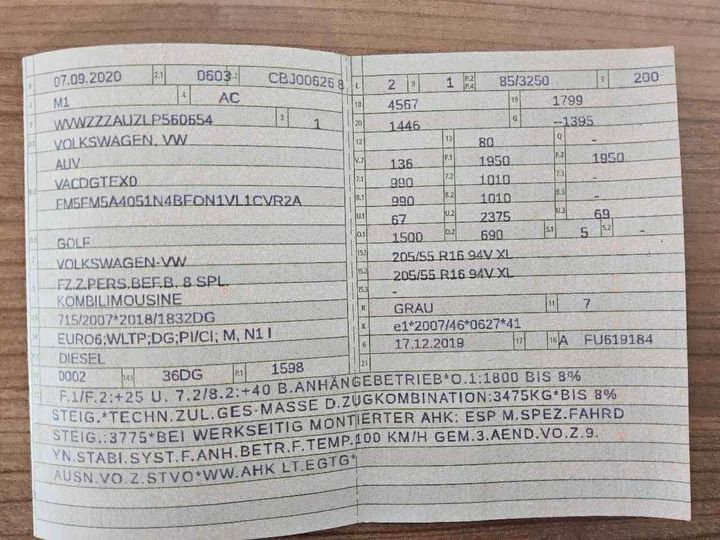 B 07.09.2020 2.1 0603 2.2 CBJ00626 8
J M1 4 AC
E WVWZZZAUZLP560654 3 1
D.1 VOLKSWAGEN, VW
AUV
D.2 VACDGTEX0
FM5FM5A4051N4BFON1VL1CVR2A
D.3 GOLF
2 VOLKSWAGEN-VW
5 FZ.Z.PERS.BEF.B. 8 SPL.
KOMBILIMOUSINE
715/2007*2018/1832DG
14 EURO6;WLTP;DG;PI/CI; M, N1 I
DIESEL
0002 14.1 36DG P.1 1598
L 2 9 1 P.2 P.4 85/3250 T 200
18 4567 19 1799
20 1446 G --1395
12 13 80 Q -
V.7 136 F.1 1950 F.2 1950
7.1 990 7.2 1010 7.3 -
8.1 990 8.2 1010 8.3 -
U.1 67 U.2 2375 U.3 69
O.1 1500 O.2 690 S.1 5 S.2 -
15.1 205/55 R16 94V XL
15.2 205/55 R16 94V XL
15.3 -
R GRAU 11 7
K e1*2007/46*0627*41
6 17.12.2019 17 16 A FU619184
21
22 F.1/F.2:+25 U. 7.2/8.2:+40 B.ANHÄNGEBETRIEB*O.1:1800 BIS 8%
STEIG.*TECHN.ZUL.GES-MASSE D.ZUGKOMBINATION:3475KG*BIS 8%
STEIG.:3775*BEI WERKSEITIG MONTIERTER AHK: ESP M.SPEZ.FAHRD
YN.STABI.SYST.F.ANH.BETR.F.TEMP.100 KM/H GEM.3.AEND.VO.Z.9.
AUSN.VO.Z.STVO*WW.AHK LT.EGTG*